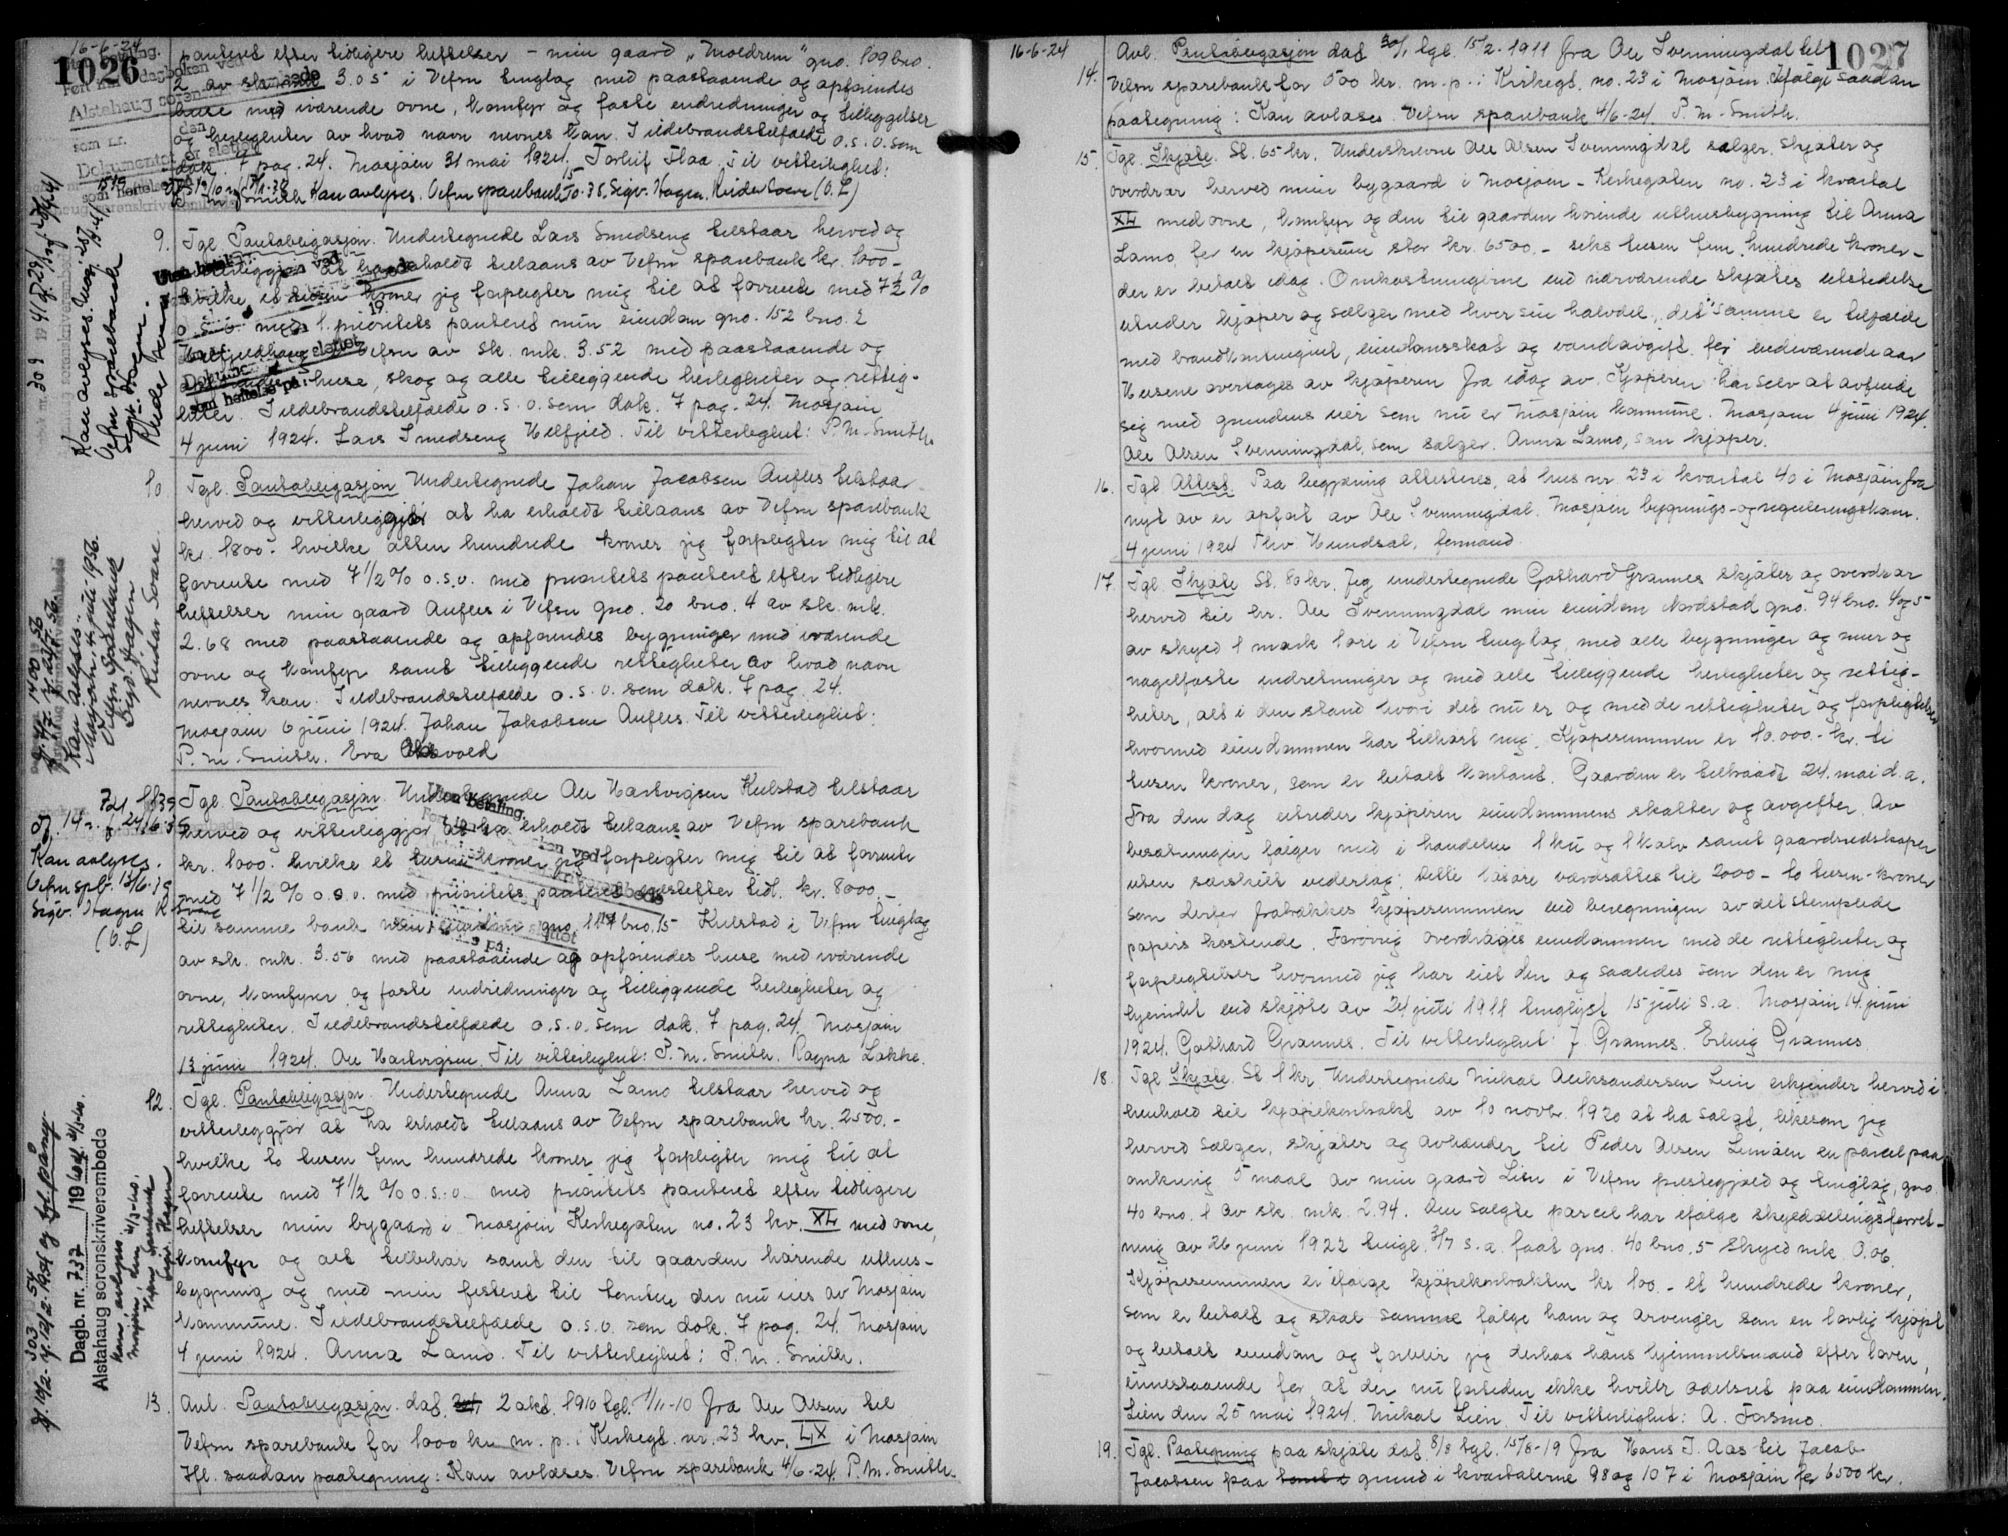 16-6-24
1026
panteret efter tidligere heftelser - min gaard "Moldrem" gno. 109 bno.
2 av sk. mk. 3.05 i Vefsn tinglag med paastaaende og opførendes
huse med iværende ovne, komfyr og faste indredninger og tilleggelser
og herligheter av hvad navn nevnes kan. I ildebrandstilfælde o.s.v. som
dok. 7 pag. 24. Mosjøen 31 mai 1924. Torleif Flaa. Til vitterlighet:
P. M. Smith Kan avlyses. Vefsn sparebank Sigv. Hagen. Reidar Svare (O.L)
9. Tgl. Pantobligasjon. Undertegnede Lars Smedseng tilstaar herved og
vitterliggjør at ha erholdt tillaans av Vefsn sparebank kr. 1000 -
hvilke et tusen kroner jeg forpligter mig til at forrente med 7 1/2 %
o.s.v. med 1. prioritets panteret min eiendom gno. 152 bno. 2
Vefsn av sk. mk. 3.52 med paastaaende og
huse, skog og alle tilleggende herligheter og rettig-
heter. I ildebrandstilfælde o.s.v. som dok. 7 pag. 24. Mosjøen
4 juni 1924. Lars Smedseng Helfjeld. Til vitterlighet: P. M. Smith.
10. Tgl. Pantobligasjon Undertegnede Johan Jacobsen Aufles tilstaar
herved og vitterliggjør at ha erholdt tillaans av Vefsn sparebank
kr. 1800.- hvilke atten hundrede kroner jeg forpligter mig til at
forrente med 7 1/2 % o.s.v. med prioritets panteret efter tidligere
heftelser min gaard Aufles i Vefsn gno. 20 bno. 4 av sk. mk.
2.68 med paastaaende og opførendes bygninger med iværende
ovne og komfyr samt tilleggende rettigheter av hvad navn
nevnes kan. I ildebrandstilfælde o.s.v. som dok. 7 pag. 24.
Mosjøen 6 juni 1924. Johan Jakobsen Aufles. Til vitterlighet:
P. M. Smith. Eva
Tgl. Pantobligasjon. Undertegnede Ole Hartvigsen Kulstad tilstaar
herved og vitterliggjør at ha erholdt tillaans av Vefsn sparebank
kr. 1000. hvilke et tusen kroner jeg forpligter mig til at forrente
med 7 1/2 % o.s.v. med prioritets panteret næstefter tidl. kr. 8000.-
til samme bank min eiendom gno. 114 bno. 15 Kulstad i Vefsn tinglag
av sk. mk. 3.56 med paastaaende og opførendes huse med iværende
ovne, komfyrer og faste indredninger og tilleggende herligheter og
rettigheter. I ildebrandstilfælde o.s.v. som dok. 7 pag. 24. Mosjøen
13 juni 1924. Ole Hartvigsen. Til vitterlighet: P. M. Smith. Ragna Løkke.
12. Tgl. Pantobligasjon. Undertegnede Anna Lamo tilstaar herved og
vitterliggjør at ha erholdt tillaans av Vefsn sparebank kr. 2500.-
hvilke to tusen fem hundrede kroner jeg forpligter mig til at
forrente med 7 1/2 % o.s.v. med prioritets panteret efter tidligere
heftelser min bygaard i Mosjøen Kirkegaten no. 23 kv. XL med ovne,
komfyr og alt tilbehør samt den til gaarden hørende uthus-
bygning og med min festeret til tomten der nu eies av Mosjøen
kommune. I ildebrandstilfælde o.s.v. som dok. 7 pag. 24. Mosjøen
4 juni 1924. Anna Lamo. Til vitterlighet: P. M. Smith.
13. Avl. Pantobligasjon. dat. 2 okt. 1910 tgl. 1/11-10 fra Ole Olsen til
Vefsn sparebank for 1000 kr. m. p. i Kirkegt. nr. 23 kv. LX i Mosjøen
Ifl. saadan paategning: Kan avlæses. Vefsn sparebank 4/6-24. P. M. Smith.
Kan avlyses.
Vefsn sparebank
Kan avlyses.
Mosjøen 4 juli 1936.
Vefsn Sparebank
Sigv. Hagen
Reidar Svare.
Kan avlyses.
Vefsn spb. 13/6-39
Sigv. Hagen R. Svare
(O.L)
Dagb. nr. 737 1940
Alstahaug sorenskriverembede
16-6-24
1027
14. Avl. Pantobligasjon dat 30/1 tgl. 15/2-1911 fra Ole Svenningdal til
Vefsn sparebank for 500 kr. m. p. i Kirkegt. no. 23 i Mosjøen. Ifølge saadan
paategning: Kan avlæses. Vefsn sparebank 4/6-24. P. M. Smith.
15. Tgl. Skjøte. St. 65 kr. Underskrevne Ole Olsen Svenningdal sælger, skjøter og
overdrar herved min bygaard i Mosjøen - Kirkegaten no. 23 i kvartal
XL med ovne, komfyr og den til gaarden hørende uthusbygning til Anna
Lamo for en kjøpesum stor kr. 6500.- seks tusen fem hundrede kroner -
der er betalt idag. Omkostningerne ved nærværende skjøtes utstedelse
utreder kjøper og sælger med hver sin halvdel, det samme er tilfælde
med brandkontingent, eiendomsskat og vandavgift for indeværende aar
Husene overtages av kjøperen fra idag av. Kjøperen har selv at avfinde
sig med grundens eier som nu er Mosjøen kommune. Mosjøen 4 juni 1924.
Ole Olsen Svenningdal, som sælger. Anna Lamo, som kjøper.
16. Tgl Attest. Paa begjæring attesteres, at hus nr. 23 i kvartal 40 i Mosjøen fra
nyt av er opført av Ole Svenningdal. Mosjøen bygnings- og reguleringskom.
4 juni 1924 Thv Hundsal, formand
17. Tgl. Skjøte St. 80 kr. Jeg undertegnede Gothard Grannes skjøter og overdrar
herved til hr. Ole Svenningdal min eiendom Nordstad gno. 94 bno. 4 og 5
av skyld 1 mark 1 øre i Vefsn tinglag, med alle bygninger og mur og
nagelfaste indretninger og med alle tilleggende herligheter og rettig-
heter, alt i den stand hvori det nu er og med de rettigheter og forpligtelser
hvormed eiendommen har tilhørt mig. Kjøpesummen er 10.000.- kr. ti
tusen kroner, som er betalt kontant. Gaarden er tiltraadt 24. mai d.a.
Fra den dag utreder kjøperen eiendommens skatter og avgifter. Av
besætningen følger med i handelen 1 ku og 1 kalv samt gaardsredskaper
uten særskilt vederlag. Dette løsøre værdsættes til 2000 - to tusen - kroner
som derfor fratrækkes kjøpesummen ved beregningen av det stemplede
papirs kostende. Forøvrig overdrages eiendommen med de rettigheter og
forpligtelser hvormed jeg har eiet den og saaledes som den er mig
hjemlet ved skjøte av 24 juli 1911 tinglyst 15 juli s.a. Mosjøen 14. juni
1924. Gothard Grannes. Til vitterlighet: J. Grannes. Erling Grannes
18. Tgl Skjøte. St 1 kr. Undertegnede Mikal Aleksandersen Lien erkjender herved i
henhold til kjøpekontrakt av 10 novbr. 1920 at ha solgt, likesom jeg
herved sælger, skjøter og avhænder til Peder Olsen Limoen en parcel paa
omkring 5 maal av min gaard Lien i Vefsn prestegjeld og tinglag, gno.
40 bno. 1 av sk. mk. 2.94. Den solgte parcel har ifølge skylddelingsforret-
ning av 26 juni 1922 tingl. 3/7 s.a. faat gno. 40 bno. 5 skyld mk. 0.06.
Kjøpesummen er ifølge kjøpekontrakten kr 100.- et hundrede kroner,
som er betalt og skal samme følge ham og arvenger som en lovlig kjøpt
og betalt eiendom og forblir jeg derhos hans hjemmelsmand efter loven,
innestaaende for at der nu fortiden ikke hviler odelsret paa eiendommen.
Lien den 25 mai 1924. Mikal Lien. Til vitterlighet: A. Forsmo.
19. Tgl. Paategning paa skjøte dat. 8/8 tgl. 15/8-19 fra Hans J. Aas til Jacob
Jacobsen paa grund i kvartalerne 98 og 107 i Mosjøen for 6500 kr.